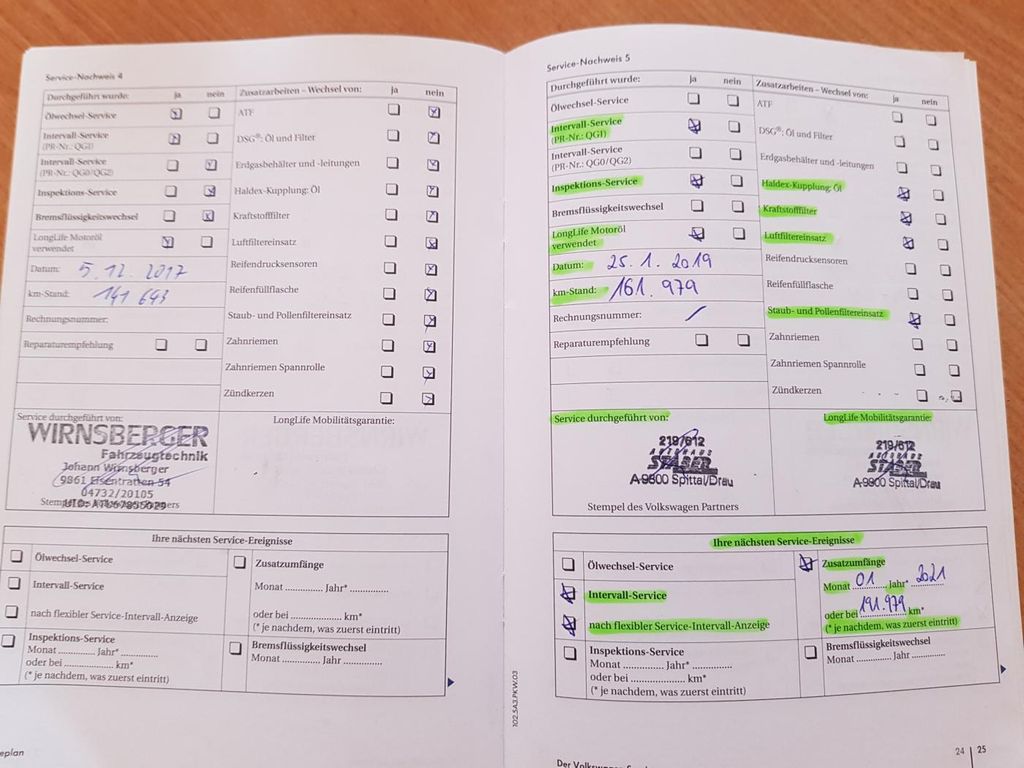 Service-Nachweis 4
Durchgeführt wurde: ja nein
Ölwechsel-Service
Intervall-Service
(PR-Nr.: QGI)
Intervall-Service
(PR-Nr.: QG0/QG2)
Inspektions-Service
Bremsflüssigkeitswechsel
LongLife Motoröl
verwendet
Datum: 5.12.2017
km-Stand: 141 643
Rechnungsnummer:
Reparaturempfehlung
Zusatzarbeiten – Wechsel von: ja nein
ATF
DSG®: Öl und Filter
Erdgasbehälter und -leitungen
Haldex-Kupplung: Öl
Kraftstofffilter
Luftfiltereinsatz
Reifendrucksensoren
Reifenfüllflasche
Staub- und Pollenfiltereinsatz
Zahnriemen
Zahnriemen Spannrolle
Zündkerzen
Service durchgeführt von:
WIRNSBERGER
Fahrzeugtechnik
Johann Wirnsberger
9861 Eisentratten 54
04732/20105
LongLife Mobilitätsgarantie:
Ihre nächsten Service-Ereignisse
Ölwechsel-Service
Intervall-Service
nach flexibler Service-Intervall-Anzeige
Inspektions-Service
Monat ............. Jahr* .............
oder bei ................... km*
(* je nachdem, was zuerst eintritt)
Zusatzumfänge
Monat ............. Jahr* .............
oder bei ................... km*
(* je nachdem, was zuerst eintritt)
Bremsflüssigkeitswechsel
Monat ............. Jahr .............
eplan
Service-Nachweis 5
Durchgeführt wurde: ja nein
Ölwechsel-Service
Intervall-Service
(PR-Nr.: QGI)
Intervall-Service
(PR-Nr.: QG0/QG2)
Inspektions-Service
Bremsflüssigkeitswechsel
LongLife Motoröl
verwendet
Datum: 25.1.2019
km-Stand: 161.979
Rechnungsnummer: /
Reparaturempfehlung
Zusatzarbeiten – Wechsel von: ja nein
ATF
DSG®: Öl und Filter
Erdgasbehälter und -leitungen
Haldex-Kupplung: Öl
Kraftstofffilter
Luftfiltereinsatz
Reifendrucksensoren
Reifenfüllflasche
Staub- und Pollenfiltereinsatz
Zahnriemen
Zahnriemen Spannrolle
Zündkerzen
Service durchgeführt von:
219/612
AUTOHAUS
STABER
A-9800 Spittal/Drau
Stempel des Volkswagen Partners
LongLife Mobilitätsgarantie:
219/612
AUTOHAUS
STABER
A-9800 Spittal/Drau
Ihre nächsten Service-Ereignisse
Ölwechsel-Service
Intervall-Service
nach flexibler Service-Intervall-Anzeige
Inspektions-Service
Monat ............. Jahr* .............
oder bei ................... km*
(* je nachdem, was zuerst eintritt)
Zusatzumfänge
Monat 01 Jahr* 2021
oder bei 191.979 km*
(* je nachdem, was zuerst eintritt)
Bremsflüssigkeitswechsel
Monat ............. Jahr .............
102.5A3.PKW.03
24 | 25